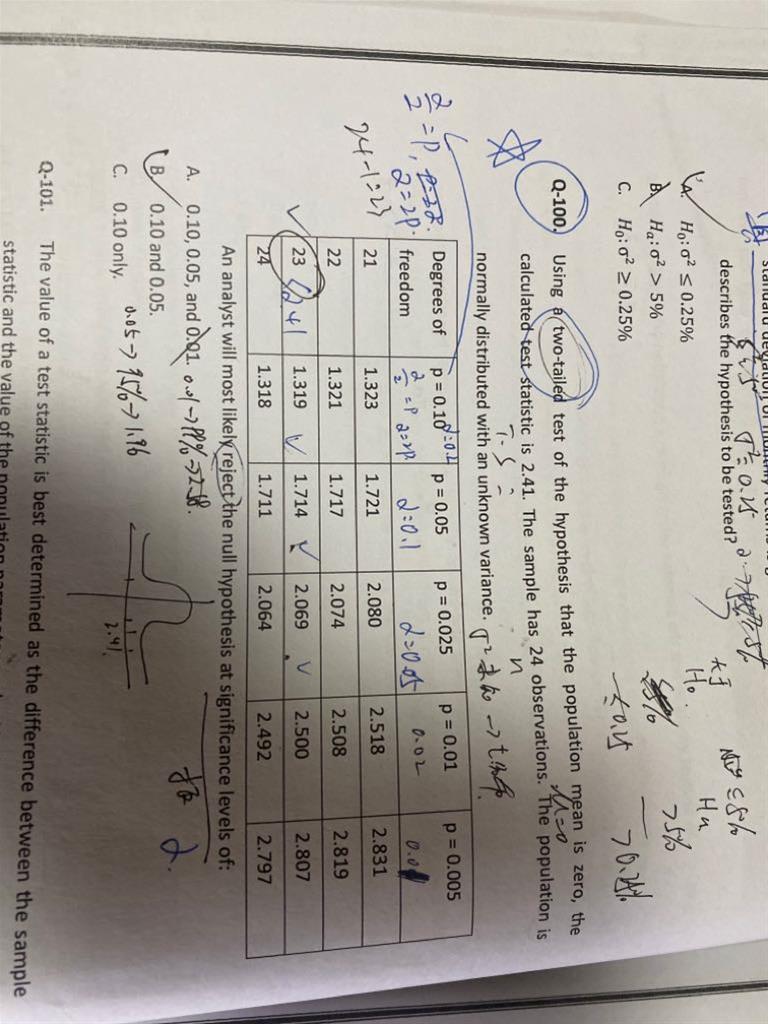 standard deviation of monthly returns is
describes the hypothesis to be tested?
A. H₀: σ² ≤ 0.25%
B. Hₐ: σ² > 5%
C. H₀: σ² ≥ 0.25%
σ² = 0.25
H₀.
Hₐ
>5%
Q-100. Using a two-tailed test of the hypothesis that the population mean is zero, the
calculated test statistic is 2.41. The sample has 24 observations. The population is
normally distributed with an unknown variance.
n
μ=0
T.S =
α/2 = P,
α=2P.
24-1=23
Degrees of freedom p = 0.10 p = 0.05 p = 0.025 p = 0.01 p = 0.005
α=0.2
α/2 = P α=2P α=0.1 α=0.05 0.02 0.01
21 1.323 1.721 2.080 2.518 2.831
22 1.321 1.717 2.074 2.508 2.819
23 1.319 1.714 2.069 2.500 2.807
24 1.318 1.711 2.064 2.492 2.797
2.41
An analyst will most likely reject the null hypothesis at significance levels of:
α.
A. 0.10, 0.05, and 0.01. 0.01→99%→2.58.
B. 0.10 and 0.05.
C. 0.10 only. 0.05→95%→1.96
2.41
Q-101. The value of a test statistic is best determined as the difference between the sample
statistic and the value of the population parameter